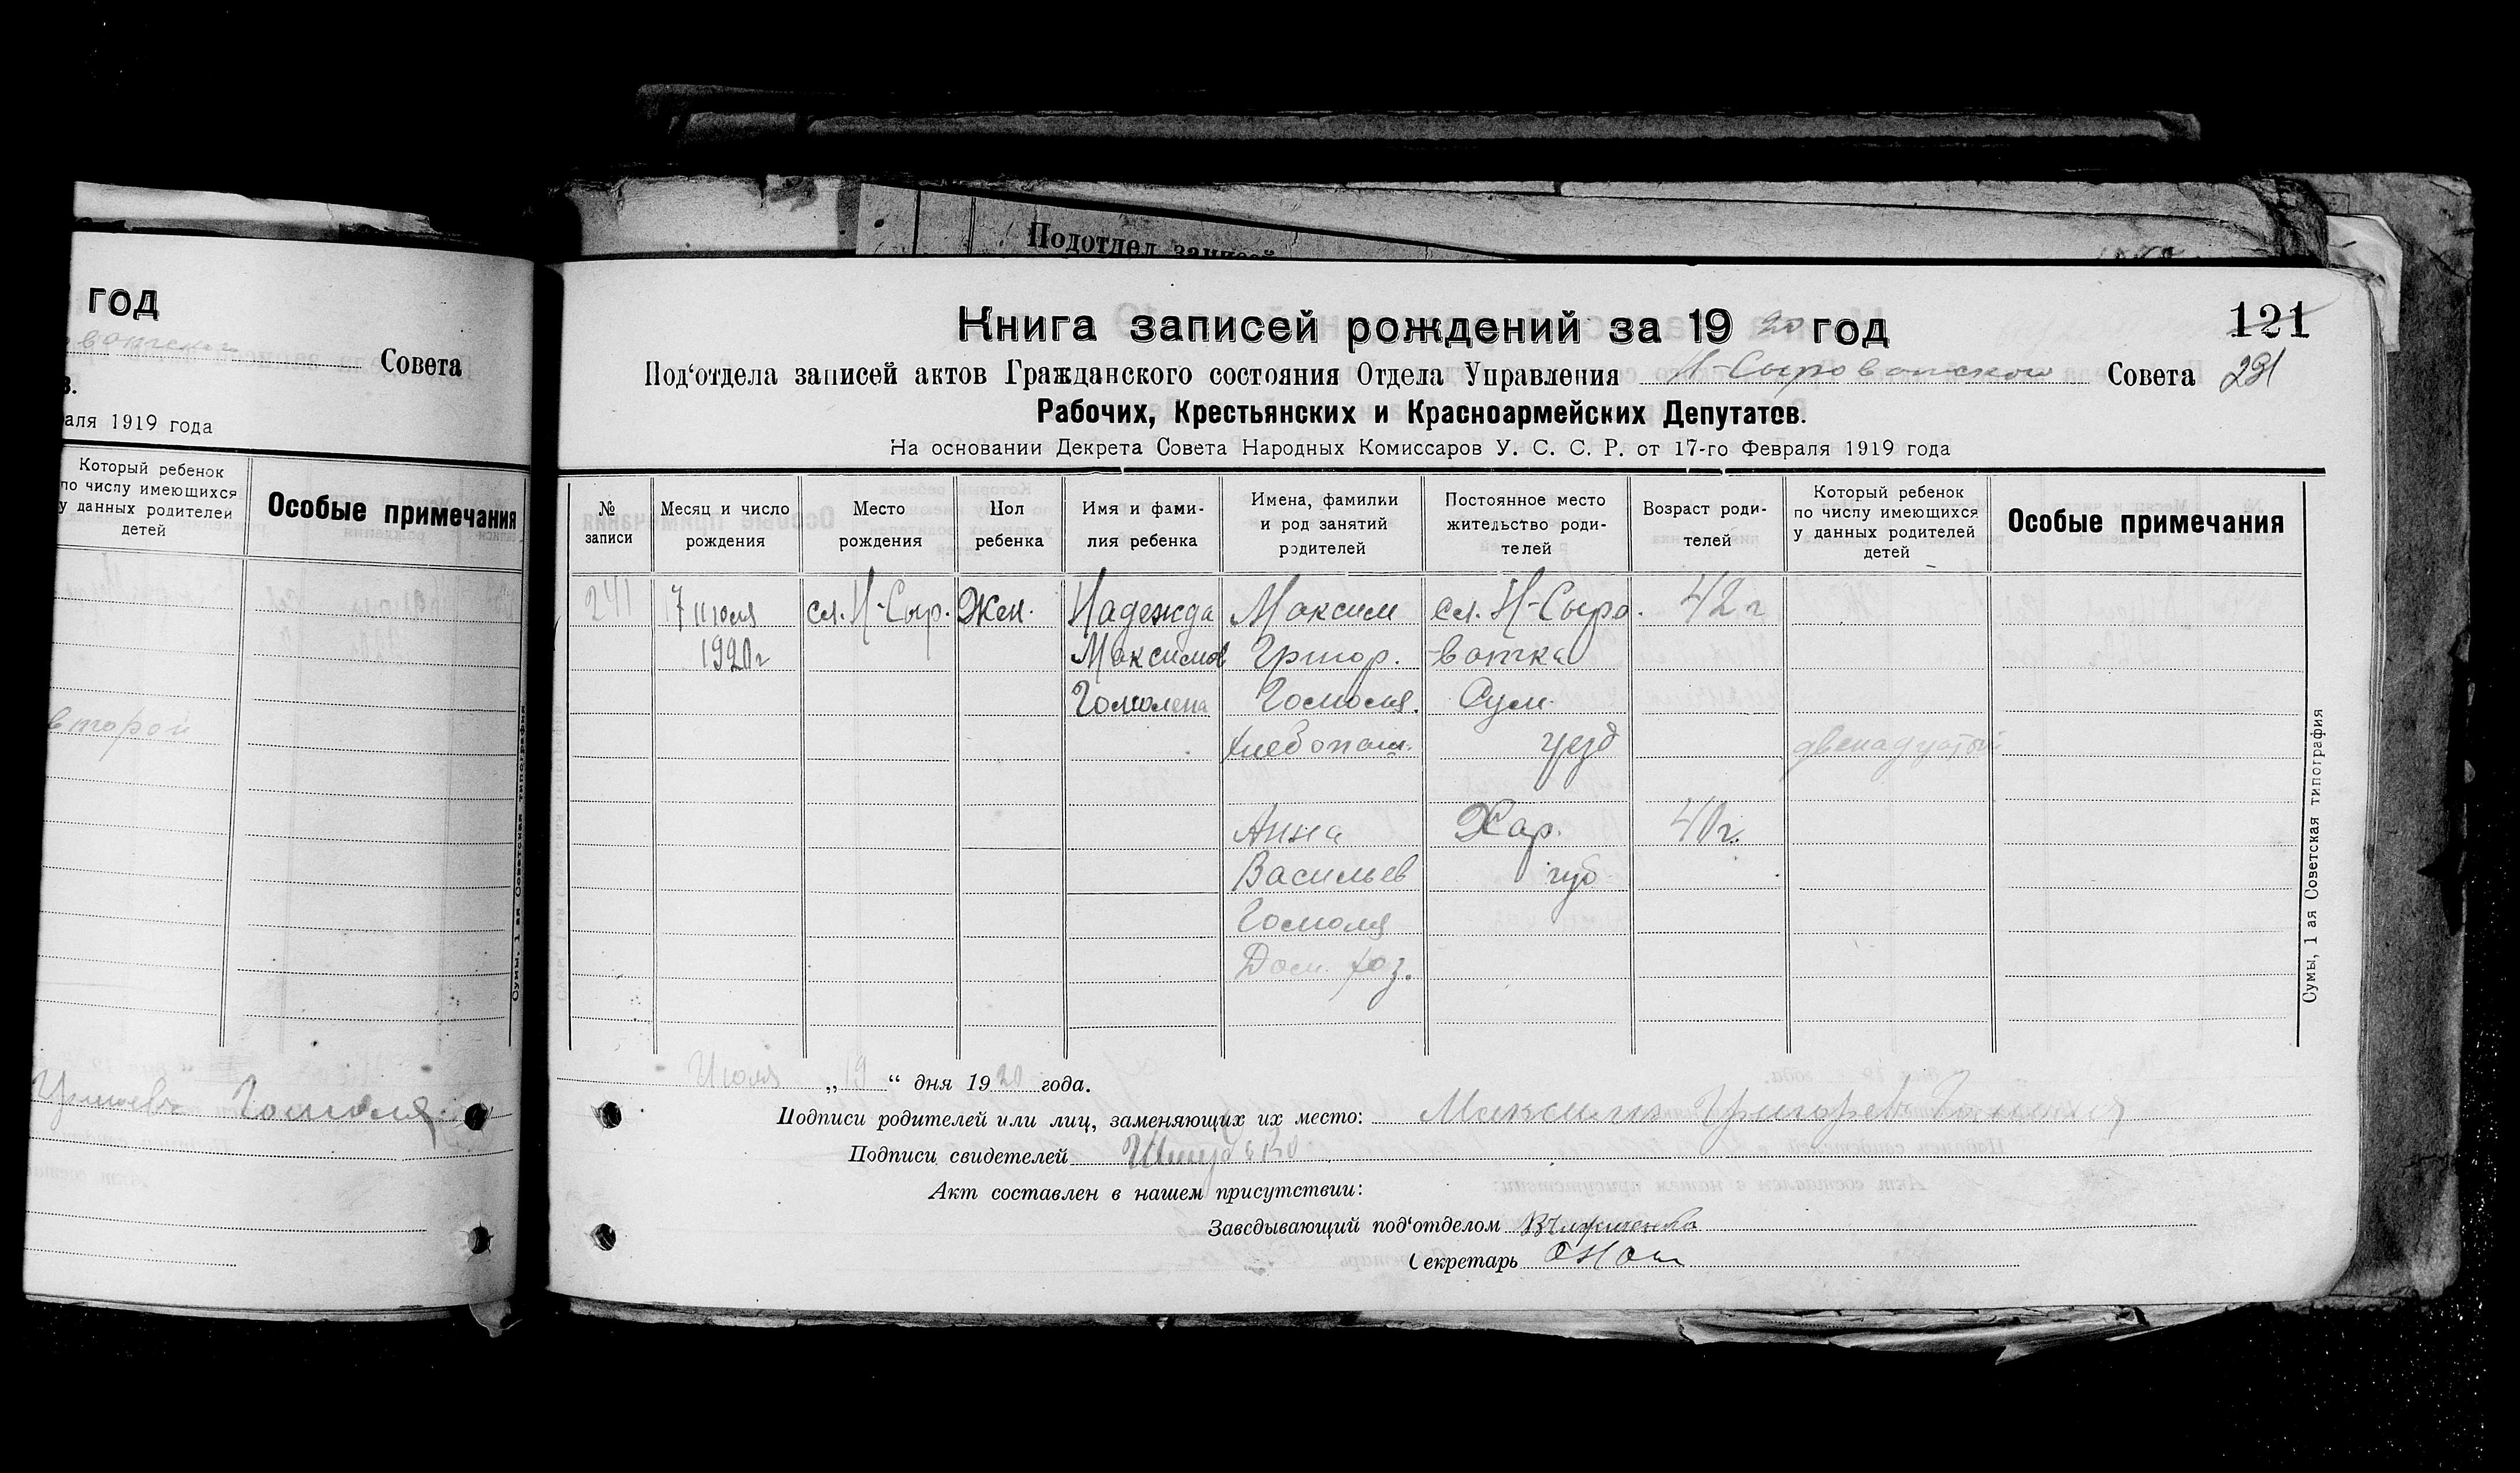 Подотдел записей
год
Совета
в.
аля 1919 года
Который ребенок
по числу имеющихся
у данных родителей
детей
Особые примечания
второй
Гомоля
Сумы, 1 ая Советская типография
Книга записей рождений за 1920 год
121
Под‘отдела записей актов Гражданского состояния Отдела Управления Н-Сыроватского Совета
231
Рабочих, Крестьянских и Красноармейских Депутатов.
На основании Декрета Совета Народных Комиссаров У. С. С. Р. от 17-го Февраля 1919 года
№
записи
Месяц и число
рождения
Место
рождения
Пол
ребенка
Имя и фами-
лия ребенка
Имена, фамилии
и род занятий
родителей
Постоянное место
жительство роди-
телей
Возраст роди-
телей
Который ребенок
по числу имеющихся
у данных родителей
детей
Особые примечания
241
17 июля
1920г
сл. Н-Сыр.
Жен.
Надежда
Максимов
Гомолена
Максим
Григор.
Гомоля.
хлебопаш.
Анна
Васильев
Гомоля
Дом. хоз.
сл. Н-Сыро-
ватка
Сум.
уезд
Хар.
губ
42 г
40 г.
двенадцатый
Сумы, 1 ая Советская типография
Июля „19“ дня 1920 года.
Подписи родителей или лиц, заменяющих их место: Максим Григорев Гомоля
Подписи свидетелей
Акт составлен в нашем присутствии:
Заведывающий под‘отделом
Секретарь